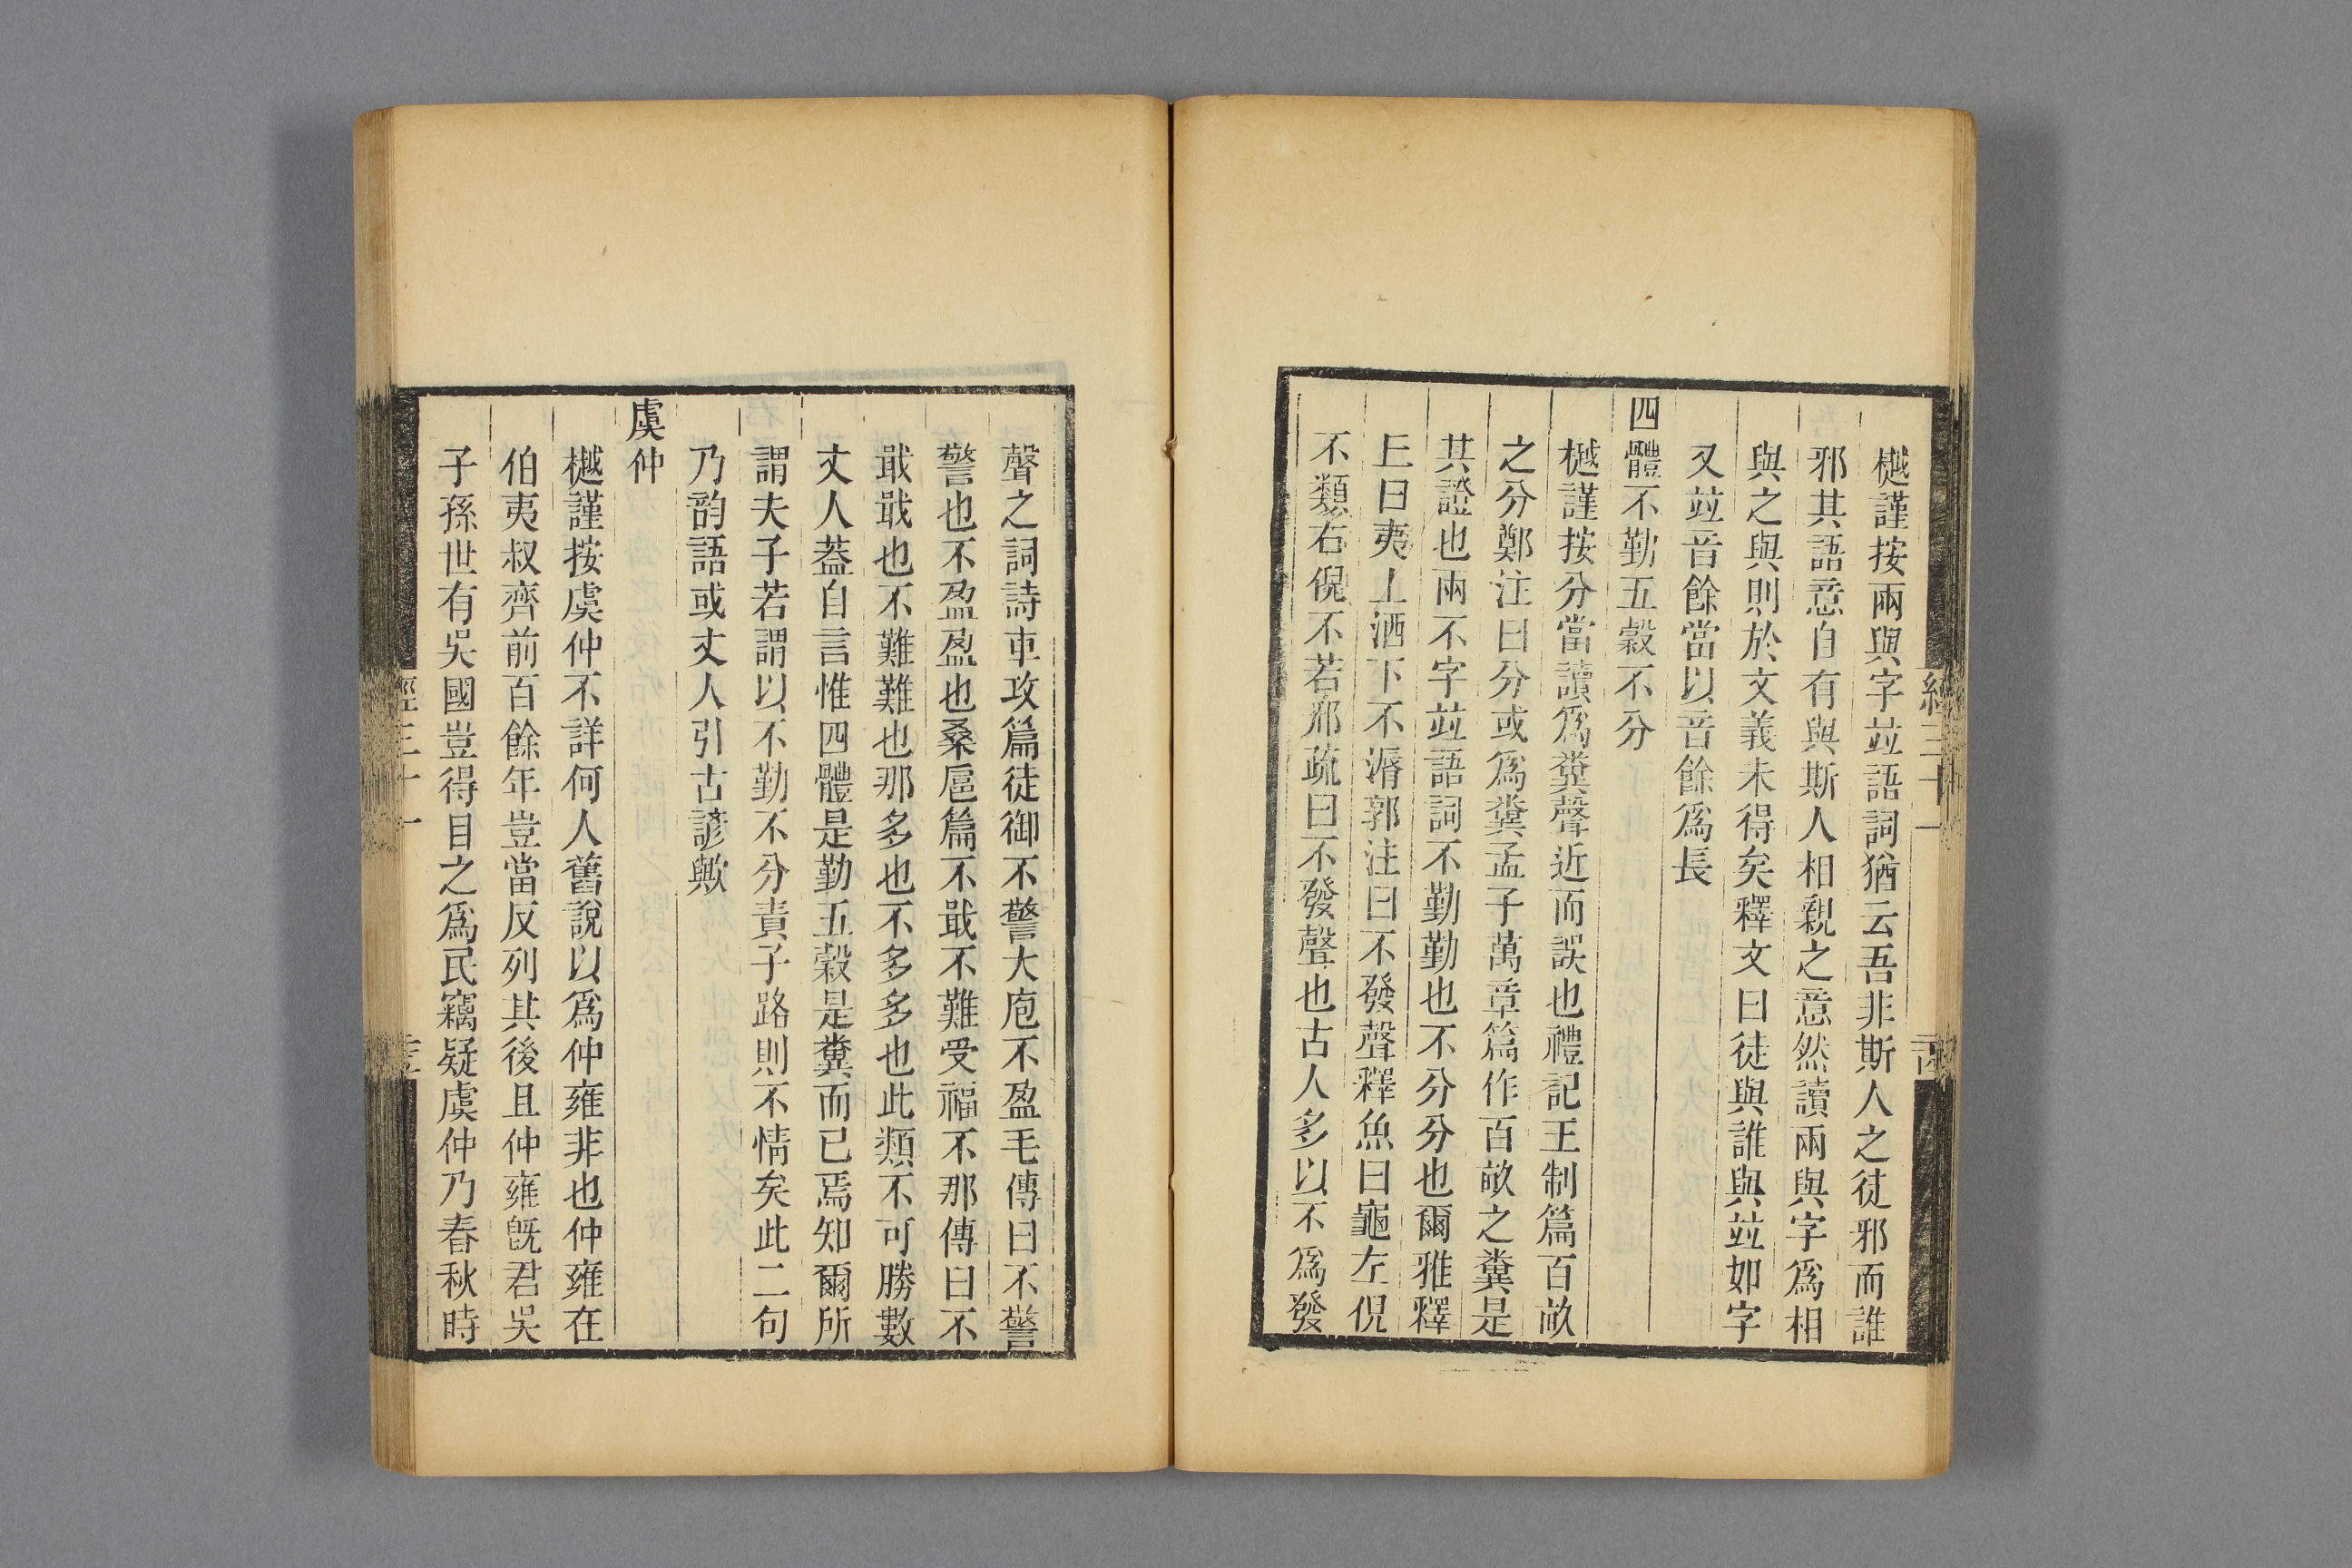 樾謹按兩與字竝語詞猶云吾非斯人之徒邪而誰
邪其語意自有與斯人相親之意然讀兩與字爲相
與之與則於文義未得矣釋文曰徒與誰與竝如字
又竝音餘當以音餘爲長
四體不勤五穀不分
樾謹按分當讀爲糞聲近而誤也禮記王制篇百畝
之分鄭注曰分或爲糞孟子萬章篇作百畝之糞是
其證也兩不字竝語詞不勤勤也不分分也爾雅釋
丘曰夷上洒下不漘郭注曰不發聲釋魚曰龜左倪
不類右倪不若邢疏曰不發聲也古人多以不爲發
經三十一
聲之詞詩車攻篇徒御不警大庖不盈毛傳曰不警
警也不盈盈也桑扈篇不戢不難受福不那傳曰不
戢戢也不難難也那多也不多多也此類不可勝數
丈人葢自言惟四體是勤五穀是糞而已焉知爾所
謂夫子若謂以不勤不分責子路則不情矣此二句
乃韵語或丈人引古諺歟
虞仲
樾謹按虞仲不詳何人舊說以爲仲雍非也仲雍在
伯夷叔齊前百餘年豈當反列其後且仲雍旣君吳
子孫世有吳國豈得目之爲民竊疑虞仲乃春秋時
經三十一